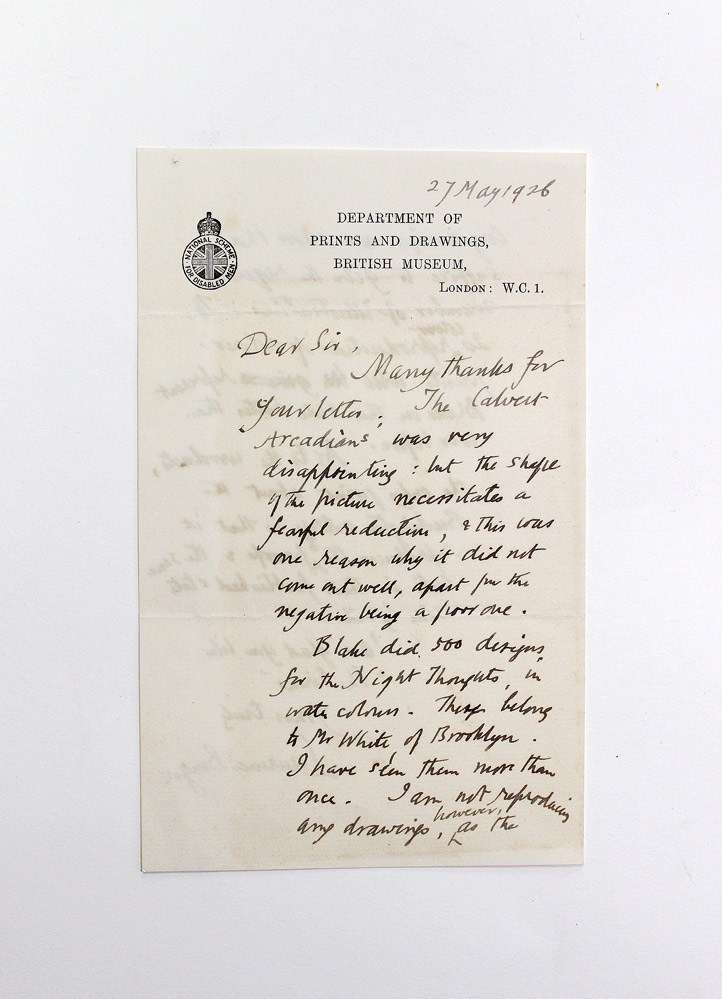 27 May 1926
DEPARTMENT OF
PRINTS AND DRAWINGS,
BRITISH MUSEUM,
LONDON: W.C. 1.
NATIONAL SCHEME
FOR DISABLED MEN
Dear Sir,
Many thanks for
your letter. The Calvert
'Arcadians' was very
disappointing: but the shape
of the picture necessitates a
fearful reduction, & this was
one reason why it did not
come out well, apart from the
negative being a poor one.
Blake did 500 designs
for the Night Thoughts, in
water colours. These belong
to Mr White of Brooklyn.
I have seen them more than
once. I am not reproducing
any drawings, however, as the